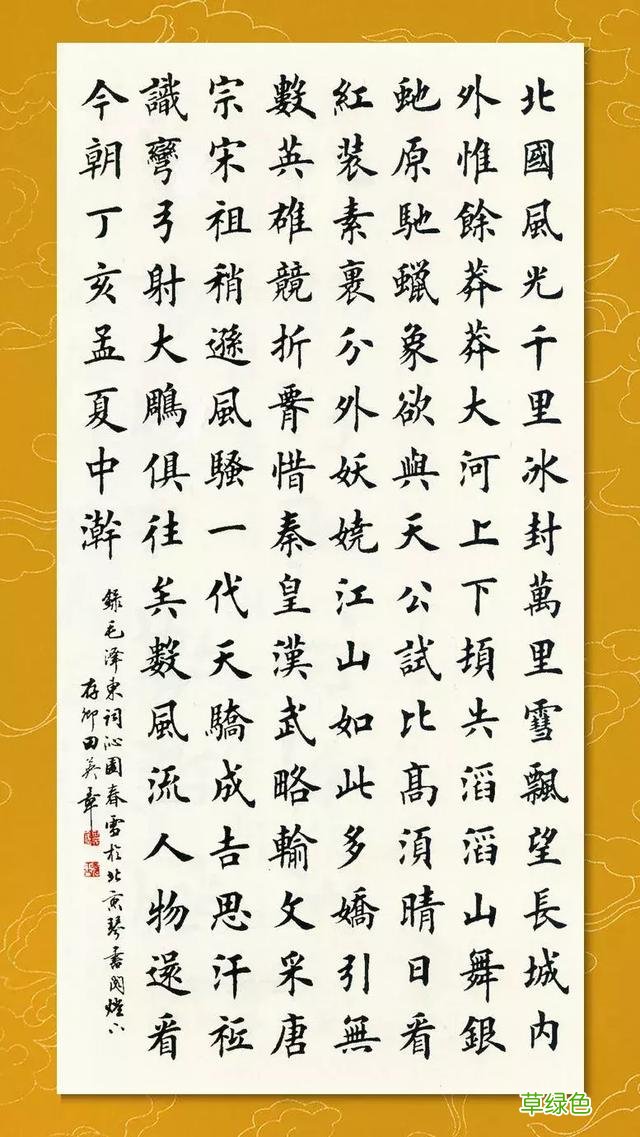 北國風光千里冰封萬里雪飄望長城内
外惟餘莽莽大河上下頓失滔滔山舞銀
虵原馳蠟象欲與天公試比高須晴日看
紅裝素裹分外妖嬈江山如此多嬌引無
數英雄競折腰惜秦皇漢武略輸文采唐
宗宋祖稍遜風騷一代天驕成吉思汗祗
識彎弓射大鵰俱往矣數風流人物還看
今朝丁亥孟夏中澣
錄毛澤東詞沁園春雪於北京琴書閣燈下
存卿田英章
草绿色